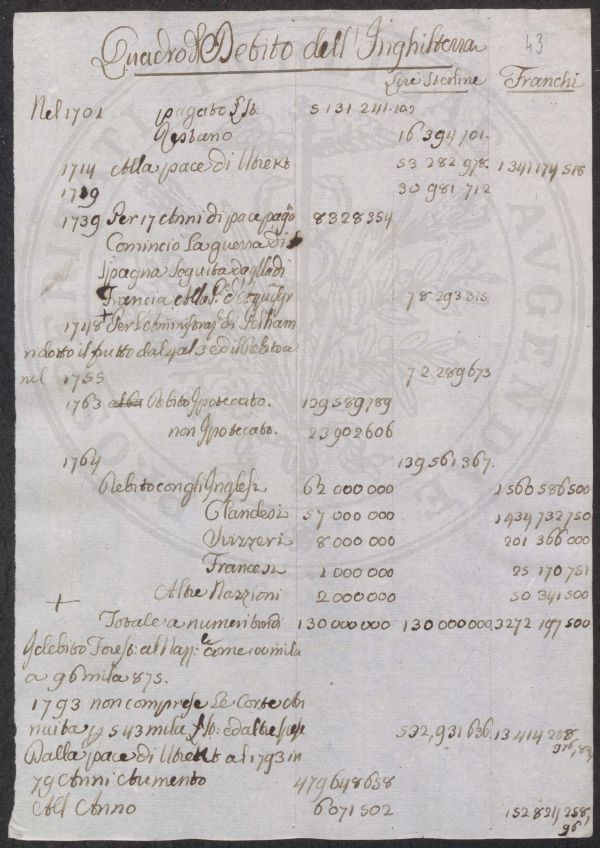 43
Quadro d. Debito dell'Inghilterra
Lire Sterline Franchi
Nel 1701 pagato 5 131 241.
Restano 16 394 701.
1714 Alla pace di Utrekt 53 282 978. 1 341 174 518
1719 30 981 712
1739 Per 17 Anni di pace pagò 8 328 354
Cominciò La guerra di
Spagna Seguita da q.lla di
Francia alla p. d'Aquisgr 78 293 313
1748 Per l'Aministraz.e di Pelham
ridotto il frutto dal 4 al 3 ed il Debito a
nel 1755 72 289 673
1763 Debito Ipotecato. 129 589 789
non Ipotecato. 23 902 606
1764 139 561 367.
Debito con gli Inglesi 62 000 000 1 560 586 500
Olandesi 57 000 000 1 434 732 750
Svizzeri 8 000 000 201 366 000
Francesi 1 000 000 25 170 751
Altre Nazzioni 2 000 000 50 341 500
Totale a numeri tondi 130 000 000 130 000 000 3272 197 500
Il debito Forest: al Nazz:le come 100 mila
a 96 mila 875.
1793 non comprese Le Corte An
nuita 543 mila ed altre spese 532,931 636. 13 414 258,
Dalla pace di Utrekt al 1793 in
79 Anni Aumento 479 648 658
All Anno 6071 502 152 824 258,
96